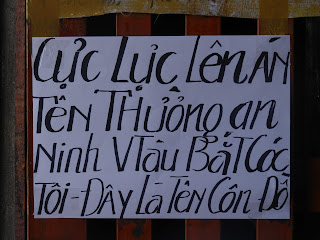 Cực Lực Lên ÁN
TÊN THƯỞNG, an
Ninh VTÀU BẮT CÓC
TÔI-ĐÂY LÀ TÊN CÔN-ĐỒ